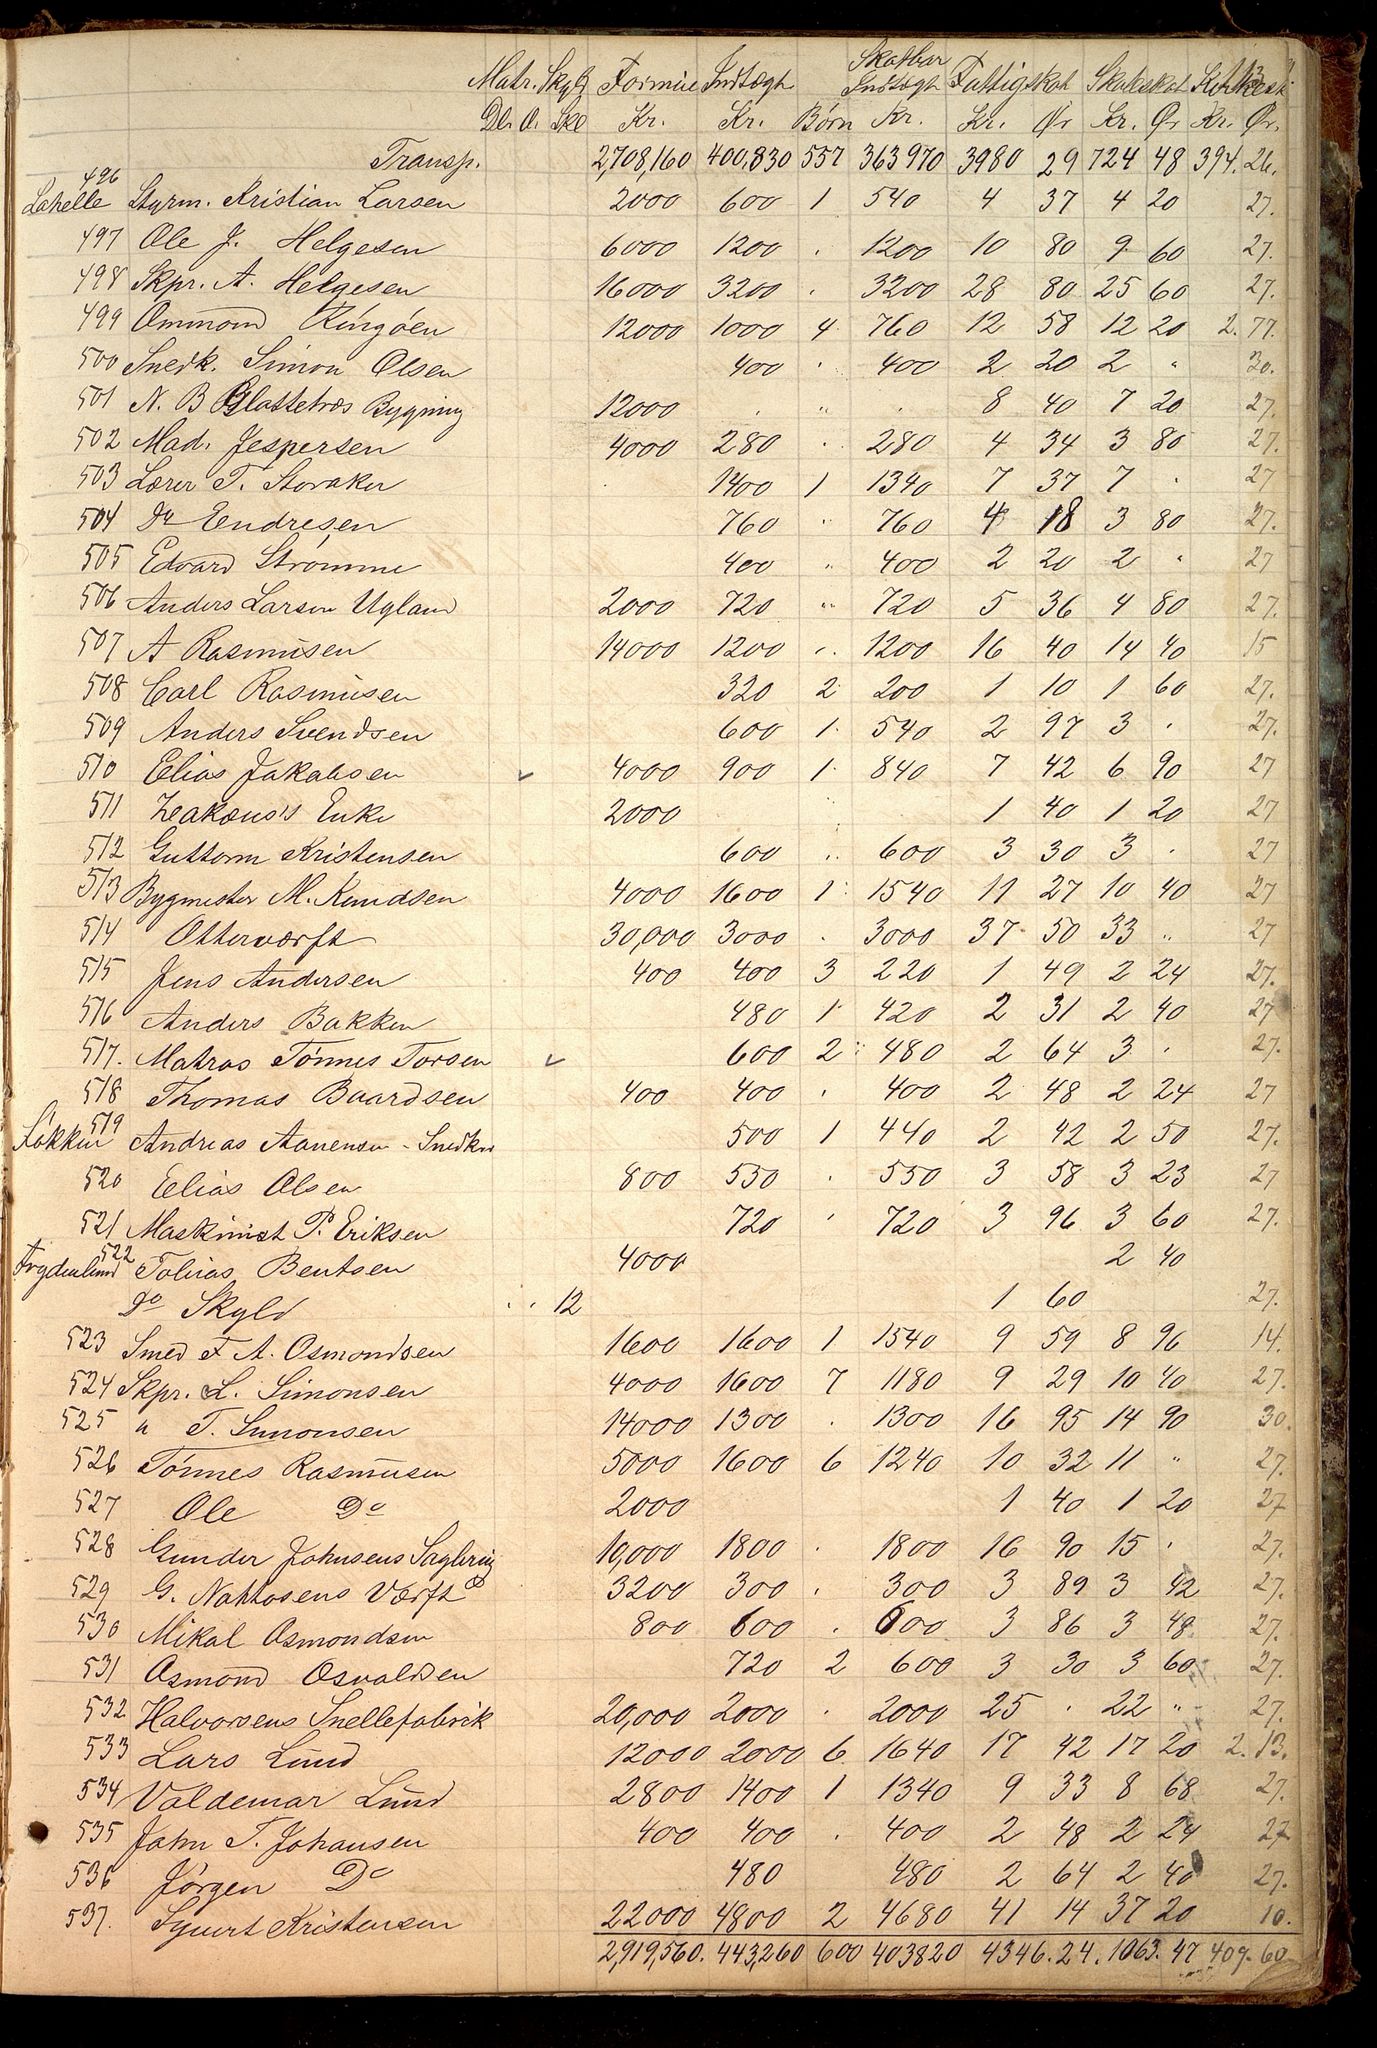 Skatbar
Matr. Skyld Formue Indtægt Indtægt Fattigskat Skoleskat
Dl. O. Sk Kr. Kr. Børn Kr. Kr. Ør Kr. Ør Kr. Ør.
Transp. 2,708,160 400,830 557 363970 3980 29 724 48 394. 26.
496
Lahelle Styrm. Kristian Larsen 2000 600 1 540 4 37 4 20 27.
497 Ole J. Helgesen 6000 1200 . 1200 10 80 9 60 27.
498 Skpr. A. Helgesen 16000 3200 . 3200 28 80 25 60 27.
499 Ommond Ringøen 12000 1000 4 760 12 58 12 20 2. 77.
500 Snedk. Simon Olsen 400 . 400 2 20 2 " 30.
501 N. B Blattetræs Bygning 12000 . " . 8 40 7 20 27.
502 Mad. Jespersen 4000 280 . 280 4 34 3 80 27.
503 Lærer T. Storaker 1400 1 1340 7 37 7 . 27
504 Do Endresen 760 " 760 4 18 3 80 27.
505 Edvard Strømme 400 " 400 2 20 2 " 27
506 Anders Larsen Ugland 2000 720 " 720 5 36 4 80 27.
507 A Rasmusen 14000 1200 " 1200 16 40 14 40 15
508 Carl Rasmusen 320 2 200 1 10 1 60 27.
509 Anders Svendsen 600 1 540 2 97 3 . 27.
510 Elias Jakabsen 4000 900 1 840 7 42 6 90 27
511 Zeakæus's Enke 2000 1 40 1 20 27
512 Guttorm Kristensen 600 " 600 3 30 3 . 27
513 Bygmester M. Knudsen 4000 1600 1 1540 11 27 10 40 27
514 Otterværft 30,000 3000 . 3000 37 50 33 " 27
515 Jens Andersen 400 400 3 220 1 49 2 24 27.
516 Anders Bakken 480 1 420 2 31 2 40 27
517. Matros Tönnes Torsen 600 2 480 2 64 3 . 27.
518 Thomas Baardsen 400 400 . 400 2 48 2 24 27
519
Løkken Andreas Aanensen - Snedker 500 1 440 2 42 2 50 27.
520 Elias Olsen 800 550 . 550 3 58 3 23 27
521 Maskinist P. Eriksen 720 ' 720 3 96 3 60 27.
522
Frydenlund Tobias Bentsen 4000 2 40
Do Skyld . . 12 1 60 27.
523 Smed F A. Osmondsen 1600 1600 1 1540 9 59 8 96 14.
524 Skpr. L. Simonsen 4000 1600 7 1180 9 29 10 40 27.
525 " T. Simonsen 14000 1300 . 1300 16 95 14 90 30.
526 Tönnes Rasmusen 5000 1600 6 1240 10 32 11 " 27.
527 Ole Do 2000 1 40 1 20 27
528 Gunder Johnsens 10,000 1800 . 1800 16 90 15 . 27.
529 G. Værft 3200 300 . 300 3 89 3 42 27.
530 Mikal Osmondsen 800 600 . 600 3 86 3 48 27.
531 Osmond Osvaldsen 720 2 600 3 30 3 60 27.
532 Halvorsens Snellefabrik 20,000 2000 . 2000 25 . 22 " 27.
533 Lars Lund 12000 2000 6 1640 17 42 17 20 2. 13.
534 Valdemar Lund 2800 1400 1 1340 9 33 8 68 27.
535 John T. Johansen 400 400 . 400 2 48 2 24 27
536 Jörgen Do 480 480 2 64 2 40 27.
537. Syvert Kristensen 22000 4800 2 4680 41 14 37 20 10.
2,919,560. 443,260 600 403820 4346. 24. 1063. 47 409. 60